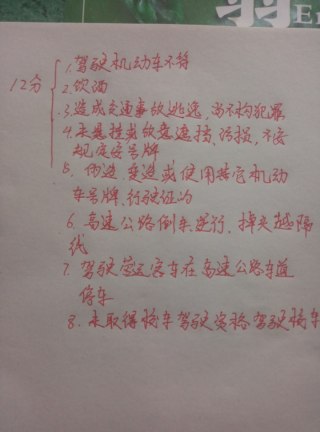 羽
En
12分
1. 驾驶机动车不符
2. 饮酒
3. 造成交通事故逃逸, 尚不构犯罪
4. 未悬挂或故意遮挡、污损, 不按
规定安号牌
5. 伪造、变造或使用其它机动
车号牌、行驶证为
6. 高速公路倒车、逆行、掉头越隔
线
7. 驾驶营运客车在高速公路车道
停车
8. 未取得校车驾驶资格驾驶校车